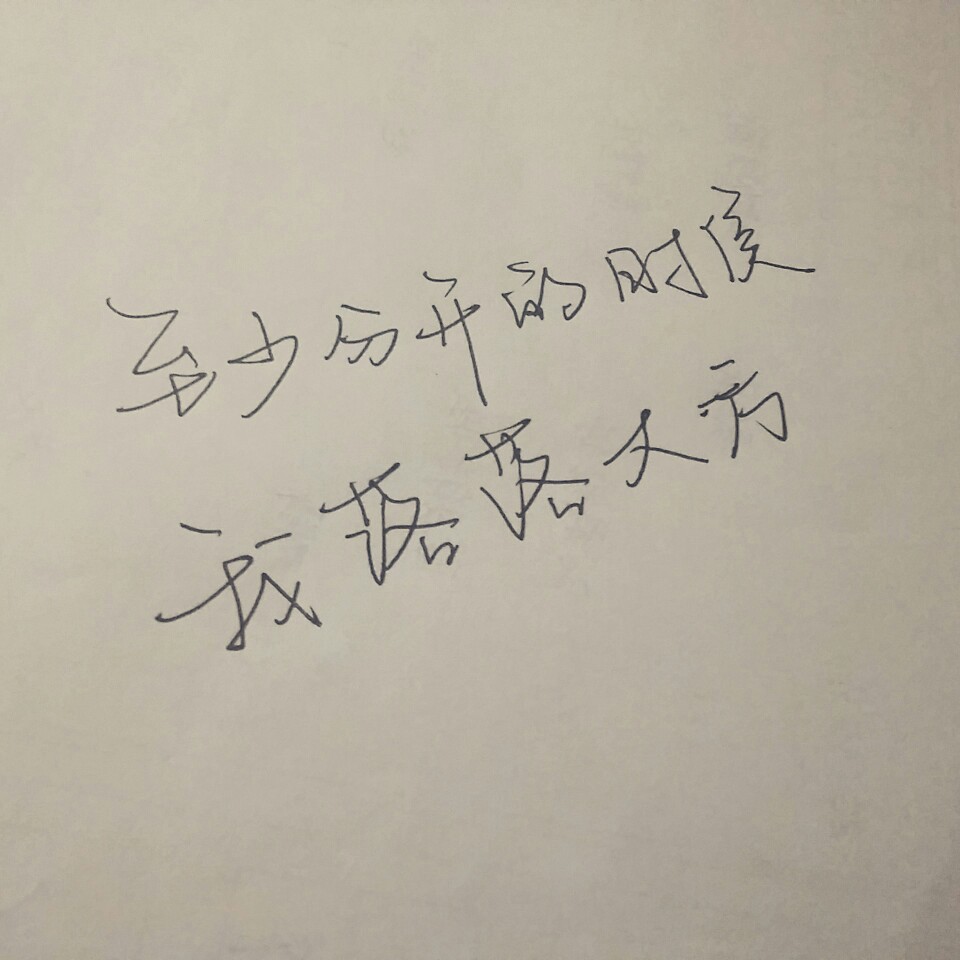 至少分开的时侯
我落落大方